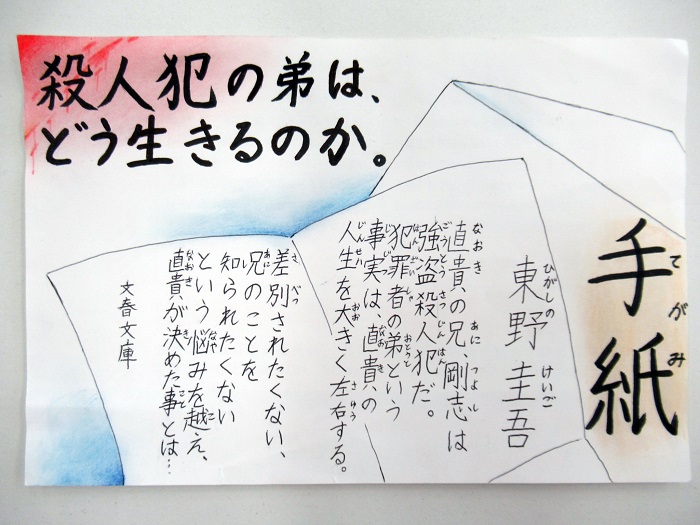 殺人犯の弟は、
どう生きるのか。
手紙
てがみ
東野圭吾
ひがしの けいご
直貴の兄、剛志は
なおき あに つよし
強盗殺人犯だ。
ごうとうさつじんはん
犯罪者の弟という
はんざいしゃ おとうと
事実は、直貴の
じじつ なおき
人生を大きく左右する。
じんせい おお さゆう
差別されたくない、
さべつ
兄のことを
あに
知られたくない
し
という悩みを越え、
なや こ
直貴が決めた事とは…
なおき き こと
文春文庫